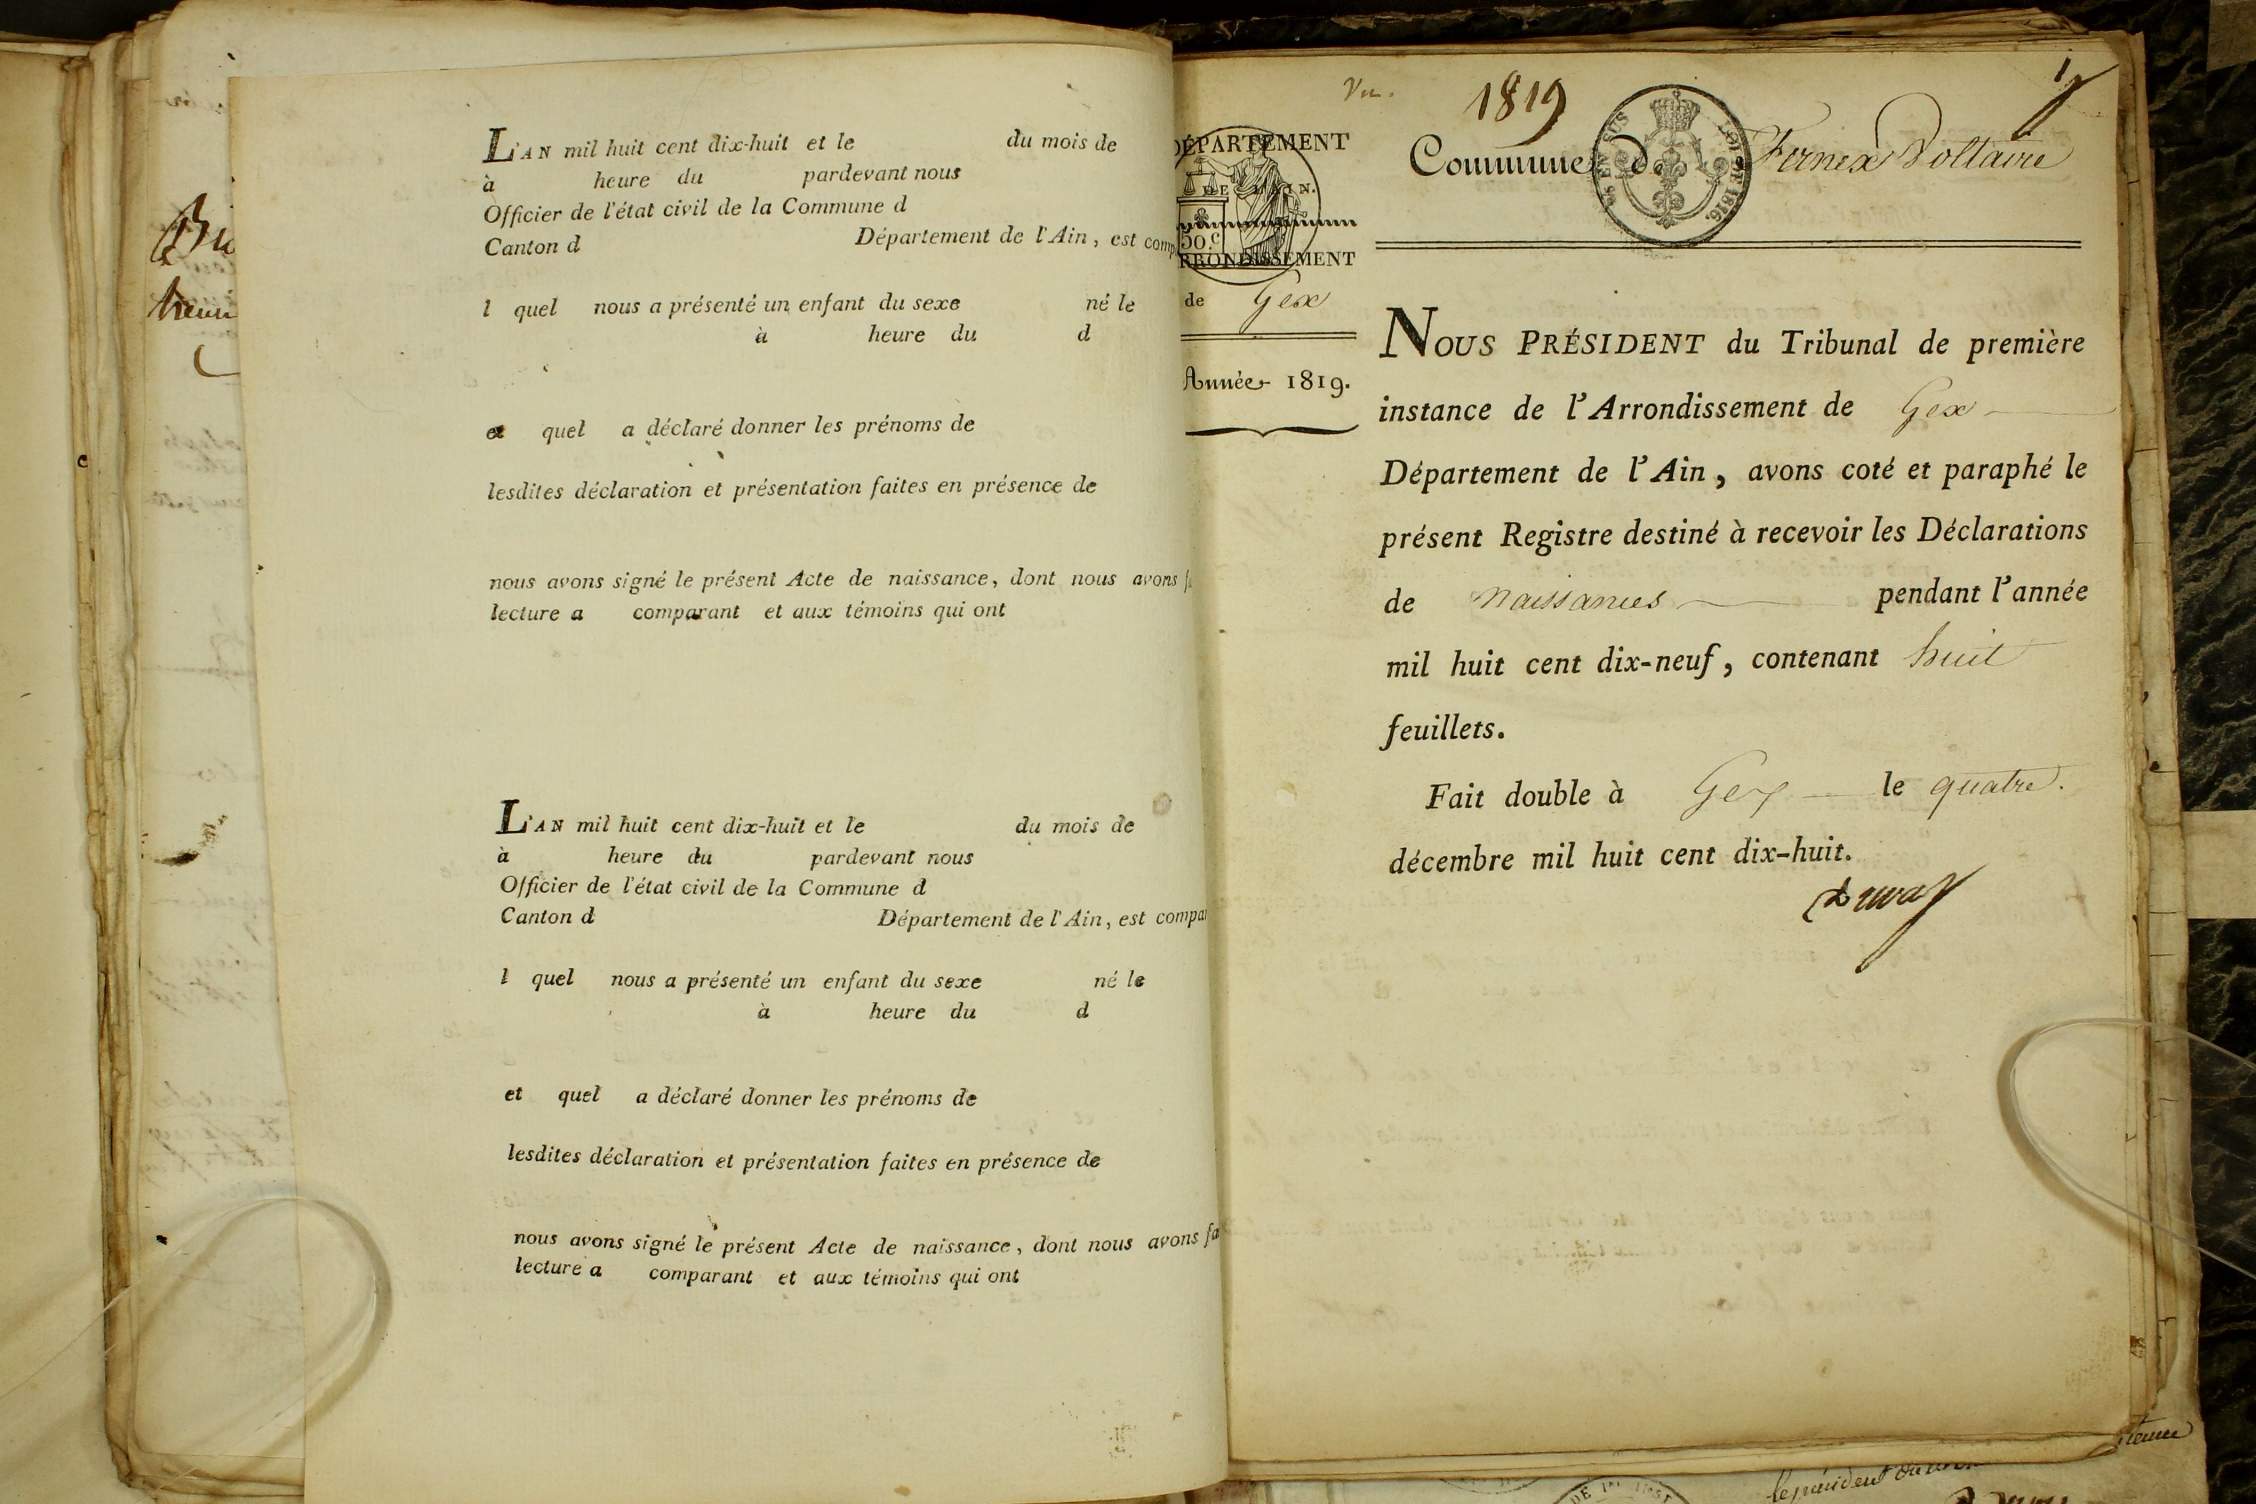 L'AN mil huit cent dix-huit et le du mois de
à heure du pardevant nous
Officier de l'état civil de la Commune d
Canton d Département de l'Ain, est comp
l quel nous a présenté un enfant du sexe né le
à heure du d
et quel a déclaré donner les prénoms de
lesdites déclaration et présentation faites en présence de
nous avons signé le présent Acte de naissance, dont nous avons f
lecture a comparant et aux témoins qui ont
L'AN mil huit cent dix-huit et le du mois de
à heure du pardevant nous
Officier de l'état civil de la Commune d
Canton d Département de l'Ain, est compar
l quel nous a présenté un enfant du sexe né le
à heure du d
et quel a déclaré donner les prénoms de
lesdites déclaration et présentation faites en présence de
nous avons signé le présent Acte de naissance, dont nous avons fa
lecture a comparant et aux témoins qui ont
Vu.
1819
1
DÉPARTEMENT
DE L'AIN.
50.c
RRONDISSEMENT
de Gex
Année 1819.
Commune de Fernex Voltaire
EN SUS
LOI DE 1816.
NOUS PRÉSIDENT du Tribunal de première
instance de l'Arrondissement de Gex
Département de l'Ain, avons coté et paraphé le
présent Registre destiné à recevoir les Déclarations
de naissances pendant l'année
mil huit cent dix-neuf, contenant huit
feuillets.
Fait double à Gex le quatre.
décembre mil huit cent dix-huit.
le président